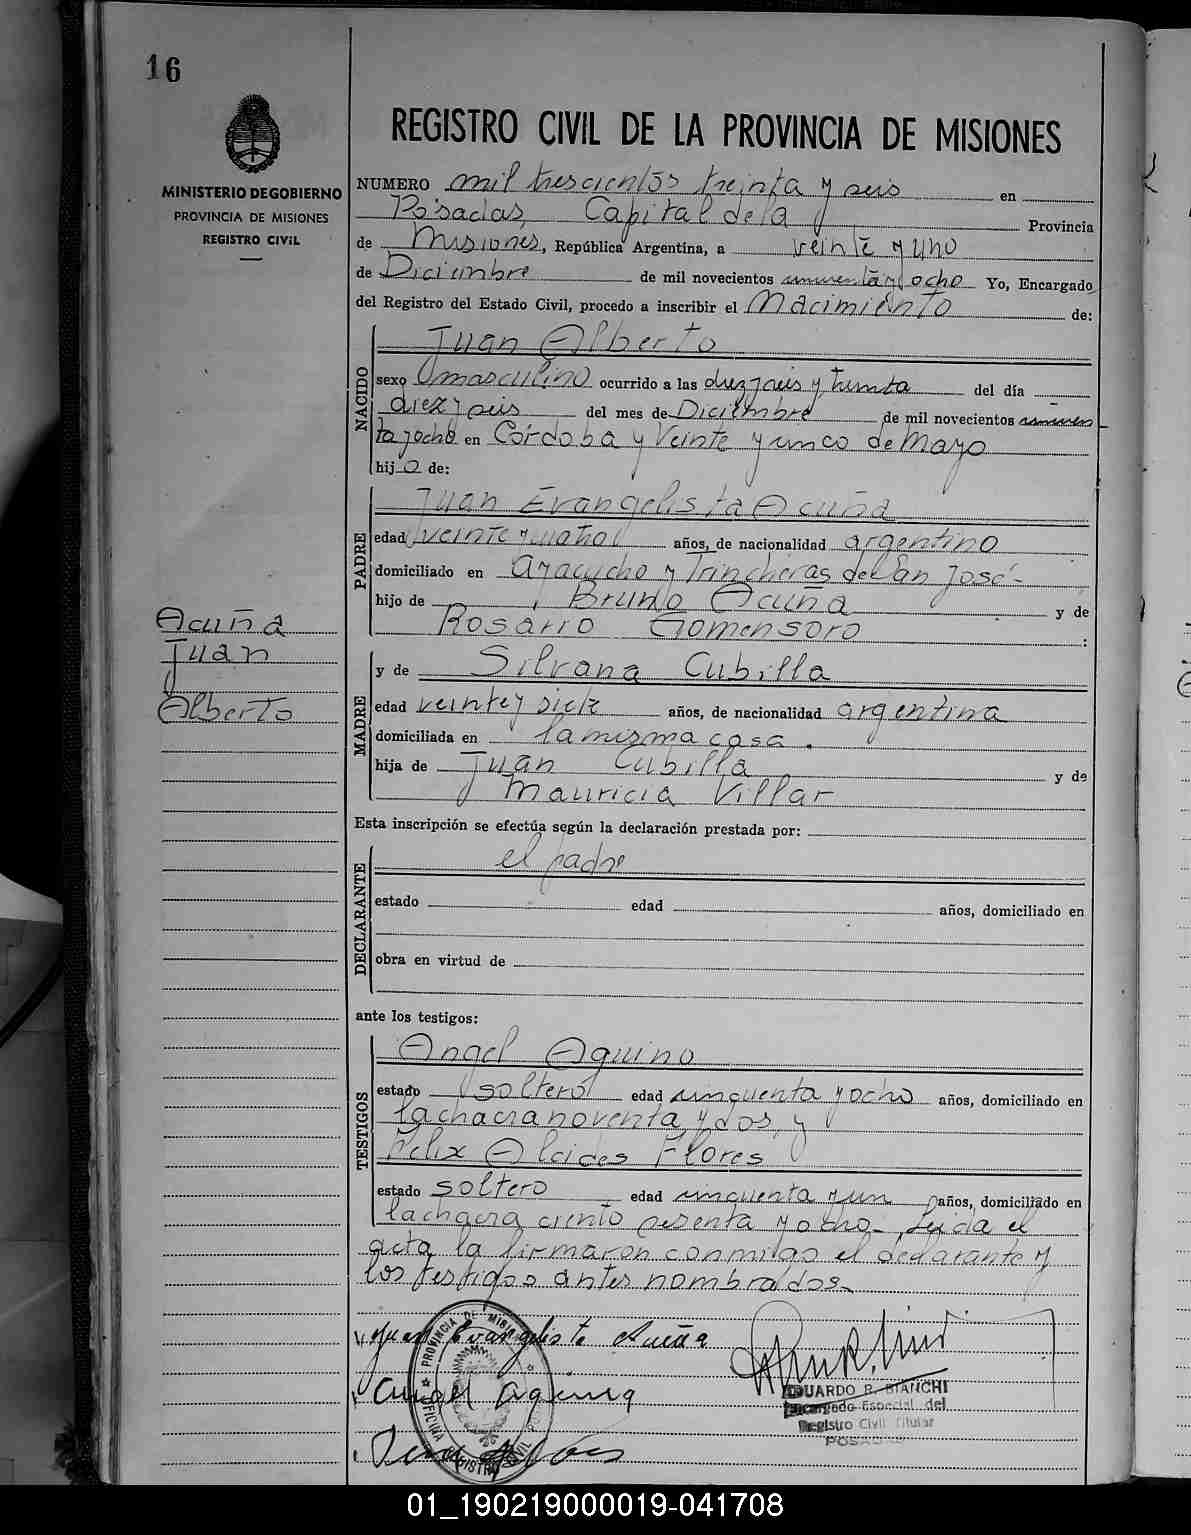 16
MINISTERIO DE GOBIERNO
PROVINCIA DE MISIONES
REGISTRO CIVIL
Acuña
Juan
Alberto
REGISTRO CIVIL DE LA PROVINCIA DE MISIONES
NUMERO mil trescientos treinta y seis en
Posadas, Capital de la Provincia
de Misiones, República Argentina, a veinte y uno
de Diciembre de mil novecientos cincuenta y ocho Yo, Encargado
del Registro del Estado Civil, procedo a inscribir el Nacimiento de:
NACIDO
Juan Alberto
sexo masculino ocurrido a las diez y seis y treinta del día
diez y seis del mes de Diciembre de mil novecientos cincuen
ta y ocho en Córdoba y Veinte y cinco de Mayo
hijo de:
PADRE
Juan Evangelista Acuña
edad veinte y años, de nacionalidad argentino
domiciliado en Ayacucho y Trincheras de San José-
hijo de Bruno Acuña y de
Rosario Gomensoro :
MADRE
y de Silvana Cubilla
edad veinte y siete años, de nacionalidad argentina
domiciliada en la misma casa.
hija de Juan Cubilla y de
Mauricia Villar
Esta inscripción se efectúa según la declaración prestada por:
DECLARANTE
el padre
estado edad años, domiciliado en
obra en virtud de
ante los testigos:
TESTIGOS
Angel Aquino
estado soltero edad cincuenta y ocho años, domiciliado en
la chacra noventa y dos, y
Félix Alcides Flores
estado soltero edad cincuenta y un años, domiciliado en
la chacra ciento sesenta y ocho- Leida el
acta la firmaron conmigo el declarante y
los testigos antes nombrados.
Juan Evangelista Acuña
Angel Aquino
PROVINCIA DE MISIONES
OFICINA REGISTRO CIVIL
EDUARDO R. BIANCHI
Encargado Especial del
Registro Civil Titular
POSADAS
01_190219000019-041708